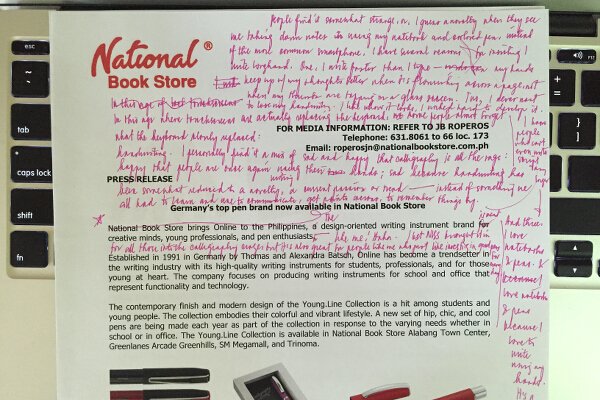 People find it somewhat strange, or, I guess a novelty when they see
me taking down notes using my notebook and colored pen, instead
of the more common smartphone. I have several reasons for insisting I
write longhand. One, I write faster than I type my hands
keep up of my thoughts better when it's flowing across a page, not
when my thumbs are tapping on a glass screen. Two, I never want
to lose my handwriting. I like how it looks, I worked hard to develop it.
National®
Book Store
In this age of touchscreens
In this age where touchscreens are actually replacing the keyboard, some people almost forget
what the keyboard slowly replaced:
FOR MEDIA INFORMATION: REFER TO JB ROPEROS
Telephone: 631.8061 to 66 loc. 173
Email: roperosjn@nationalbookstore.com.ph
handwriting. I personally find it a mix of sad and happy that calligraphy is all the rage:
happy that people are once again using their hands; sad because handwriting has
PRESS RELEASE
been somewhat reduced to a novelty, a current passion or trend instead of something we
all had to learn and use to communicate, get points across, to remember things by.
Germany's top pen brand now available in National Book Store
National Book Store brings Online to the Philippines, a design-oriented writing instrument brand for
creative minds, young professionals, and pen enthusiasts
like me! Haha. NBS brought it in
for all those into the calligraphy craze, but it's also great for people like me who just
Established in 1991 in Germany by Thomas and Alexandra Batsch, Online has become a trendsetter in
the writing industry with its high-quality writing instruments for students, professionals, and for those
young at heart. The company focuses on producing writing instruments for school and office that
represent functionality and technology.
The contemporary finish and modern design of the Young.Line Collection is a hit among students and
young people. The collection embodies their colorful and vibrant lifestyle. A new set of hip, chic, and cool
pens are being made each year as part of the collection in response to the varying needs whether in
school or in office. The Young.Line Collection is available in National Book Store Alabang Town Center,
Greenlanes Arcade Greenhills, SM Megamall, and Trinoma.
I know
people
who can't
even write
script
any
longer
And three
I love
notebooks
& pens. &
because I
love notebooks
& pens
because I
love to
write
using my
hands.
It's a
esc
tab
caps lock
shift
fn
F7